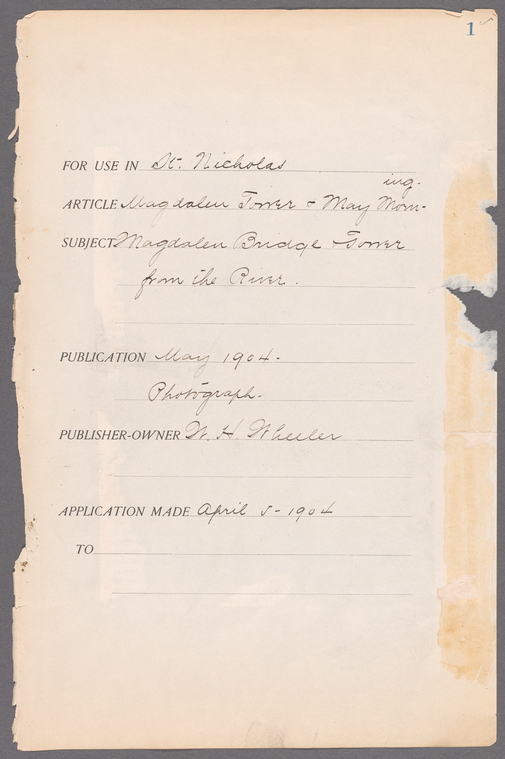 1
FOR USE IN St. Nicholas
ing.
ARTICLE Magdalen Tower & May Morn-
SUBJECT Magdalen Bridge & Tower
from the River.
PUBLICATION May 1904.
Photograph.
PUBLISHER-OWNER W. H. Wheeler
APPLICATION MADE April 5-1904
TO